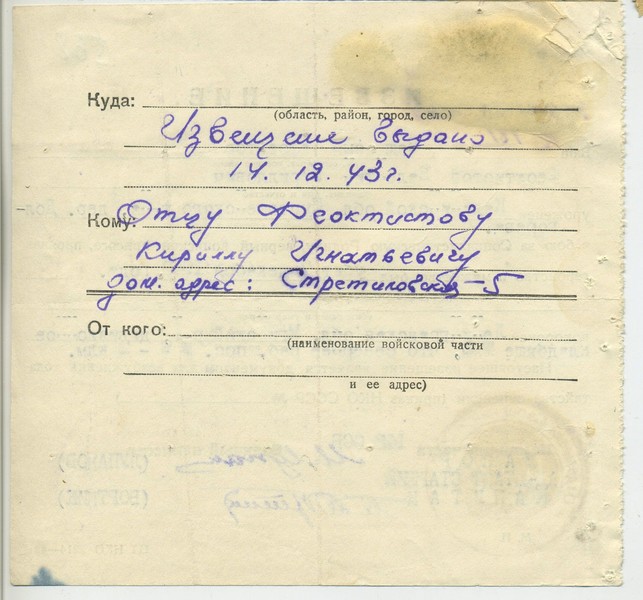 Куда:
(область, район, город, село)
Извещение выдано
14. 12. 43 г.
Кому: Отцу Феоктистову
Кириллу Игнатьевичу
дом. адрес: -5
От кого:
(наименование войсковой части
и ее адрес)